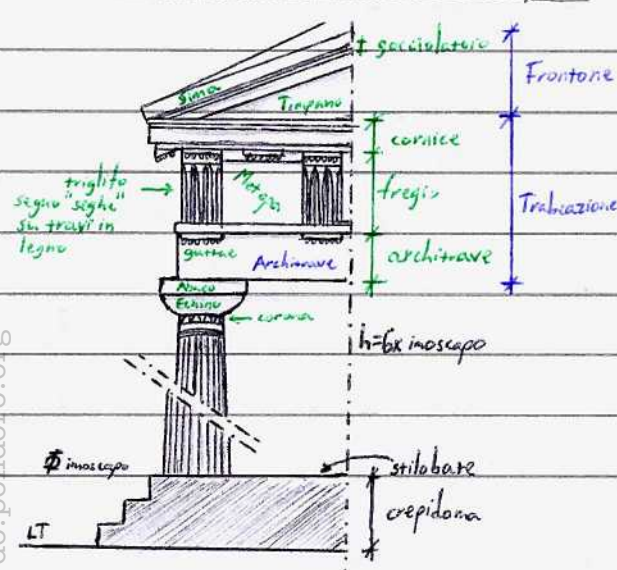 gocciolatoio
Frontone
Sima
Timpano
cornice
triglifo
segno "seghe"
su travi in
legno
Metopa
fregio
Trabeazione
guttae
Architrave
architrave
Abaco
Echino
corona
h=6x imoscapo
Φ imoscapo
stilobate
crepidoma
LT